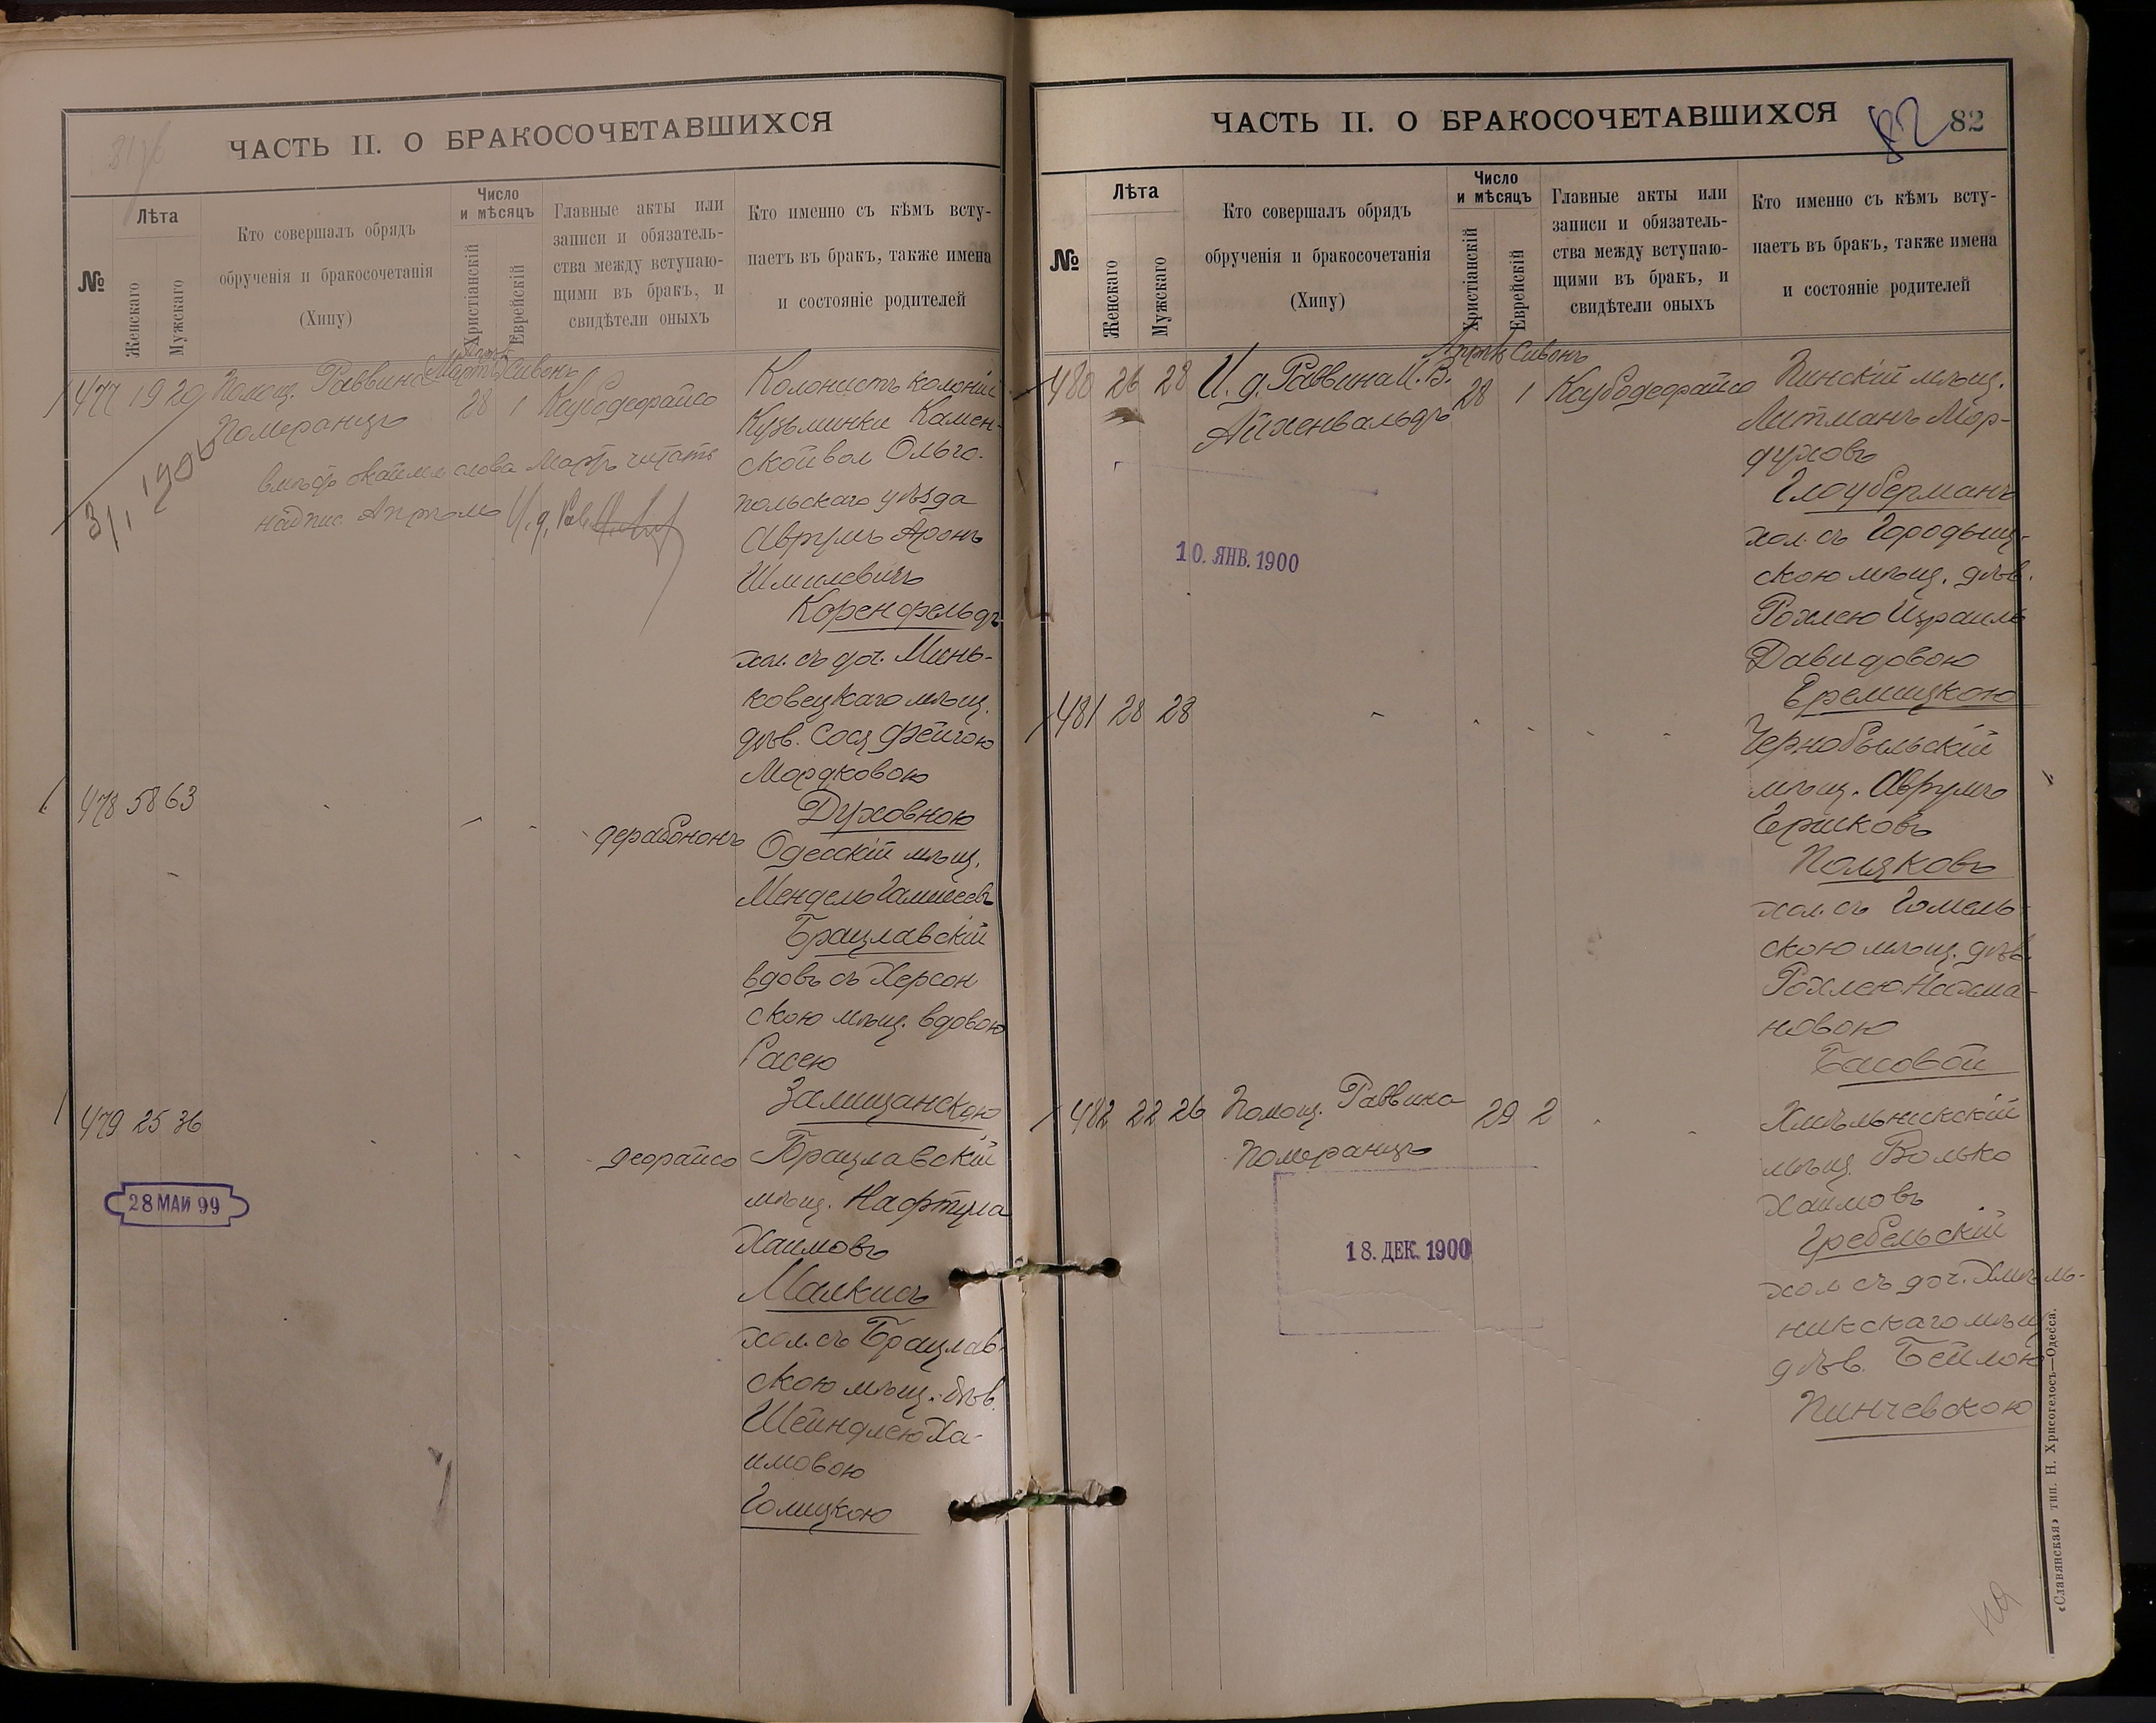 ЧАСТЬ II. О БРАКОСОЧЕТАВШИХСЯ
№
Лѣта
Женскаго
Мужскаго
Кто совершалъ обрядъ
обрученія и бракосочетанія
(Хипу)
Число
и мѣсяцъ
Христіанскій
Еврейскій
Главные акты или
записи и обязатель-
ства между вступаю-
щими въ бракъ, и
свидѣтели оныхъ
Кто именно съ кѣмъ всту-
паетъ въ бракъ, также имена
и состояніе родителей
477 19 20 Помощ. Раввина
Померанцъ
Мартъ Сивонъ
28 1
Колонистъ колоніи
Кузьминки Камен-
ской вол Ольго-
польскаго уѣзда
Аврумъ Аронъ
Шмилевичъ
Коренфельдъ
хол. съ доч. Минь-
ковецкаго мѣщ.
дѣв. Сося Фейгою
Мордковою
Духовною
вмѣсто слова Мартъ читать
надпис. Апрѣль И. д. Рав.
3/I 1900
478 58 63
дерабононъ
Одесскій мѣщ.
Мендель
Брацлавскій
вдовъ съ Херсон
скою мѣщ. вдовою
Расею
Залищанскою
479 25 36
деорайсо
Брацлавскій
мѣщ. Нафтула
Хаимовъ
Малкисъ
хол. съ Брацлав-
скою мѣщ. дѣв.
Шейндлею Ха-
имовою
Голицкою
28 МАИ 99
ЧАСТЬ II. О БРАКОСОЧЕТАВШИХСЯ
82
82
№
Лѣта
Женскаго
Мужскаго
Кто совершалъ обрядъ
обрученія и бракосочетанія
(Хипу)
Число
и мѣсяцъ
Христіанскій
Еврейскій
Главные акты или
записи и обязатель-
ства между вступаю-
щими въ бракъ, и
свидѣтели оныхъ
Кто именно съ кѣмъ всту-
паетъ въ бракъ, также имена
и состояніе родителей
480 26 28 И. д. Раввина И. В.
Айхенвальдъ
Апрѣль Сивонъ
28 1
Пинскій мѣщ.
Литманъ Мор-
духовъ
Глоуберманъ
хол. съ Городищ-
скою мѣщ. дѣв.
Рохлею Израиль
Давидовою
Еремицкою
10. ЯНВ. 1900
481 28 28
Чернобыльскій
мѣщ. Аврумъ
Гершковъ
Поляковъ
хол. съ Гомель-
скою мѣщ. дѣв.
Рохлею Нохма-
новою
Басовой
482 22 26 Помощ. Раввина
Померанцъ
29 2
Хмѣльникскій
мѣщ. Волько
Хаимовъ
Гребельскій
хол съ доч. Хмѣль-
никскаго мѣщ
дѣв. Бейлою
Пинчевскою
18. ДЕК. 1900
«Славянская» тип. Н. Хрисогелосъ—Одесса.